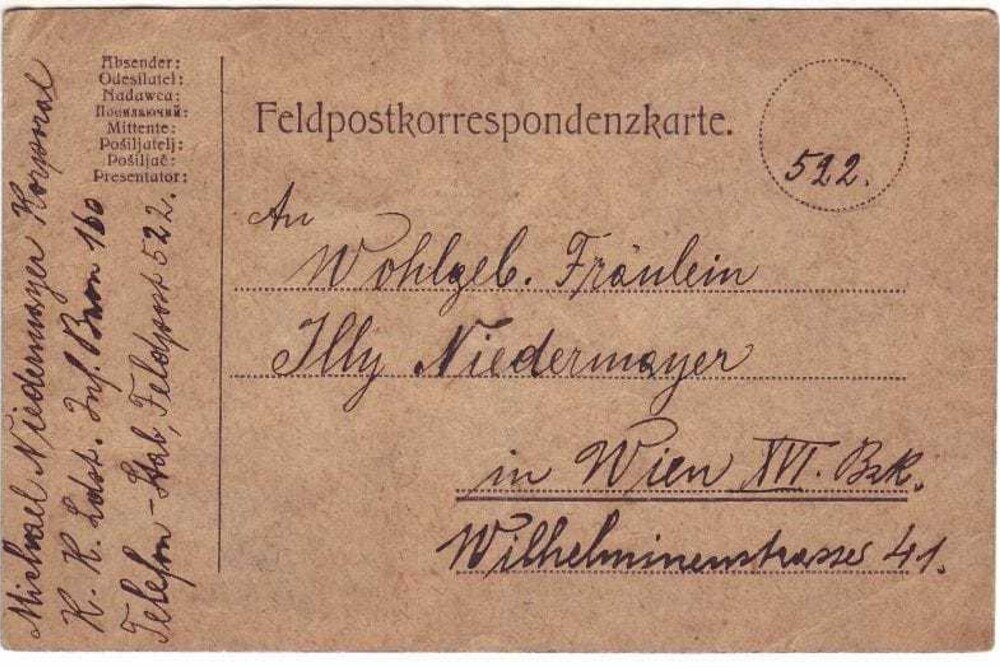 Absender:
Odesilatel:
Nadawca:
Посилаючий:
Mittente:
Pošiljatelj:
Pošiljač:
Presentator:
Feldpostkorrespondenzkarte.
522.
An
Wohlgeb. Fräulein
Illy Niedermayer
in Wien XVI. Bzk.
Wilhelminenstrasse 41.
Michael Niedermayer Korporal
K. K. Ldst. Inf. Baon 160
Telefon-Stab, Feldpost 522.